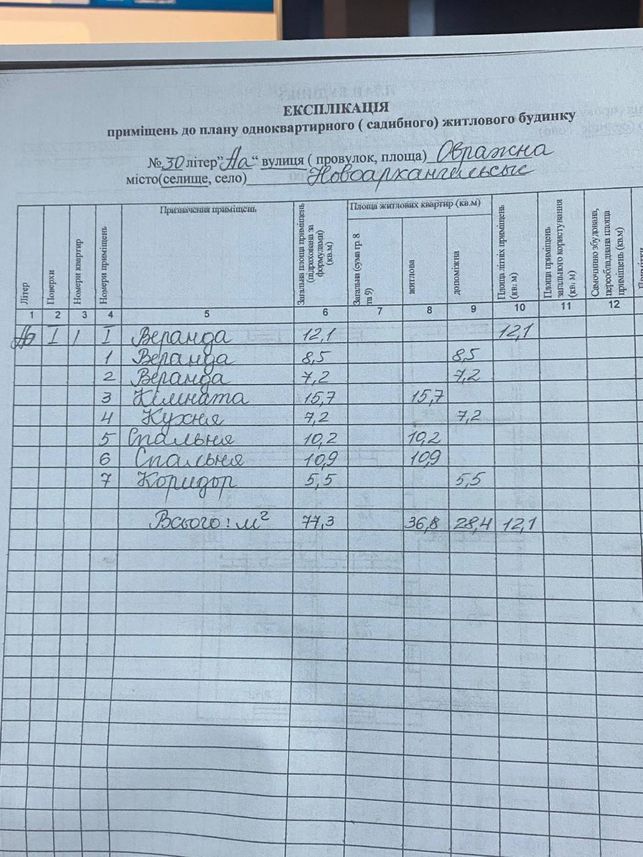 ЕКСПЛІКАЦІЯ
приміщень до плану одноквартирного ( садибного) житлового будинку
№ 30 літер "Аа" вулиця ( провулок, площа) Овражна
місто(селище, село) Новоархангельськ
Літер Поверхи Номери квартир Номери приміщень Призначення приміщень Загальна площа приміщень (підрахована за формулами) (кв.м) Площа житлових квартир (кв.м) Загальна (сума гр. 8 та 9) житлова допоміжна Площа літніх приміщень (кв. м) Площа приміщень загального користування (кв. м) Самочинно збудована, переобладнана площа приміщень (кв.м)
1 2 3 4 5 6 7 8 9 10 11 12
Аа I 1 I Веранда 12,1 12,1
1 Веранда 8,5 8,5
2 Веранда 7,2 7,2
3 Кімната 15,7 15,7
4 Кухня 7,2 7,2
5 Спальня 10,2 10,2
6 Спальня 10,9 10,9
7 Коридор 5,5 5,5
Всього: м² 77,3 36,8 28,4 12,1